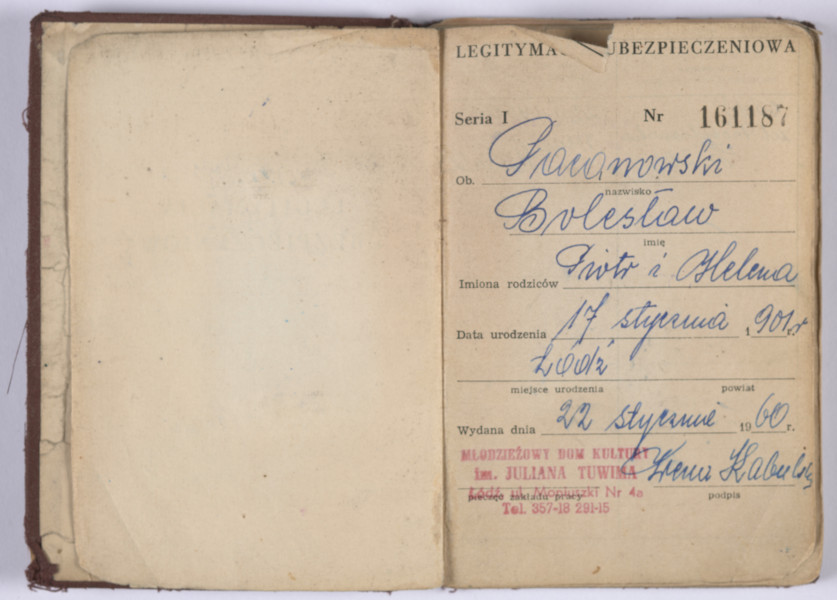 LEGITYMA UBEZPIECZENIOWA
Seria I Nr 161187
Ob. Pacanowski
nazwisko
Bolesław
imię
Imiona rodziców Piotr i Helena
Data urodzenia 17 stycznia 1901 r.
Łódź
miejsce urodzenia powiat
Wydana dnia 22 stycznia 1960 r.
MŁODZIEŻOWY DOM KULTURY
im. JULIANA TUWIMA Irena
Łódź, ul. Moniuszki Nr 4a
pieczęć zakładu pracy podpis
Tel. 357-18 291-15